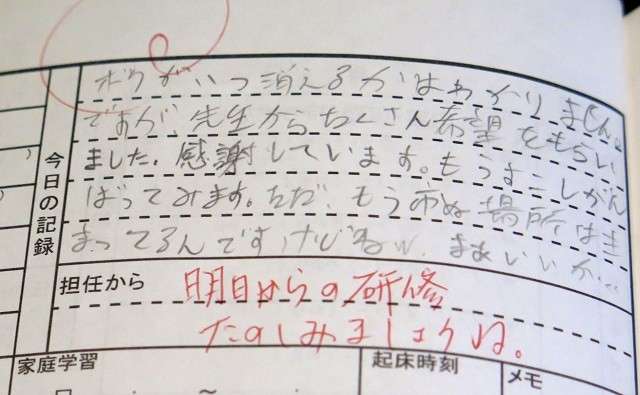 今日の記録
ボクがいつ消えるかはわかりません。
ですが、先生からたくさん希望をもらい
ました。感謝しています。もうすこしがん
ばってみます。ただ、もう市ぬ場所はき
まってるんですけどねw。まあいいか…
担任から
明日からの研修
たのしみましょうね。
家庭学習
起床時刻
メモ
~